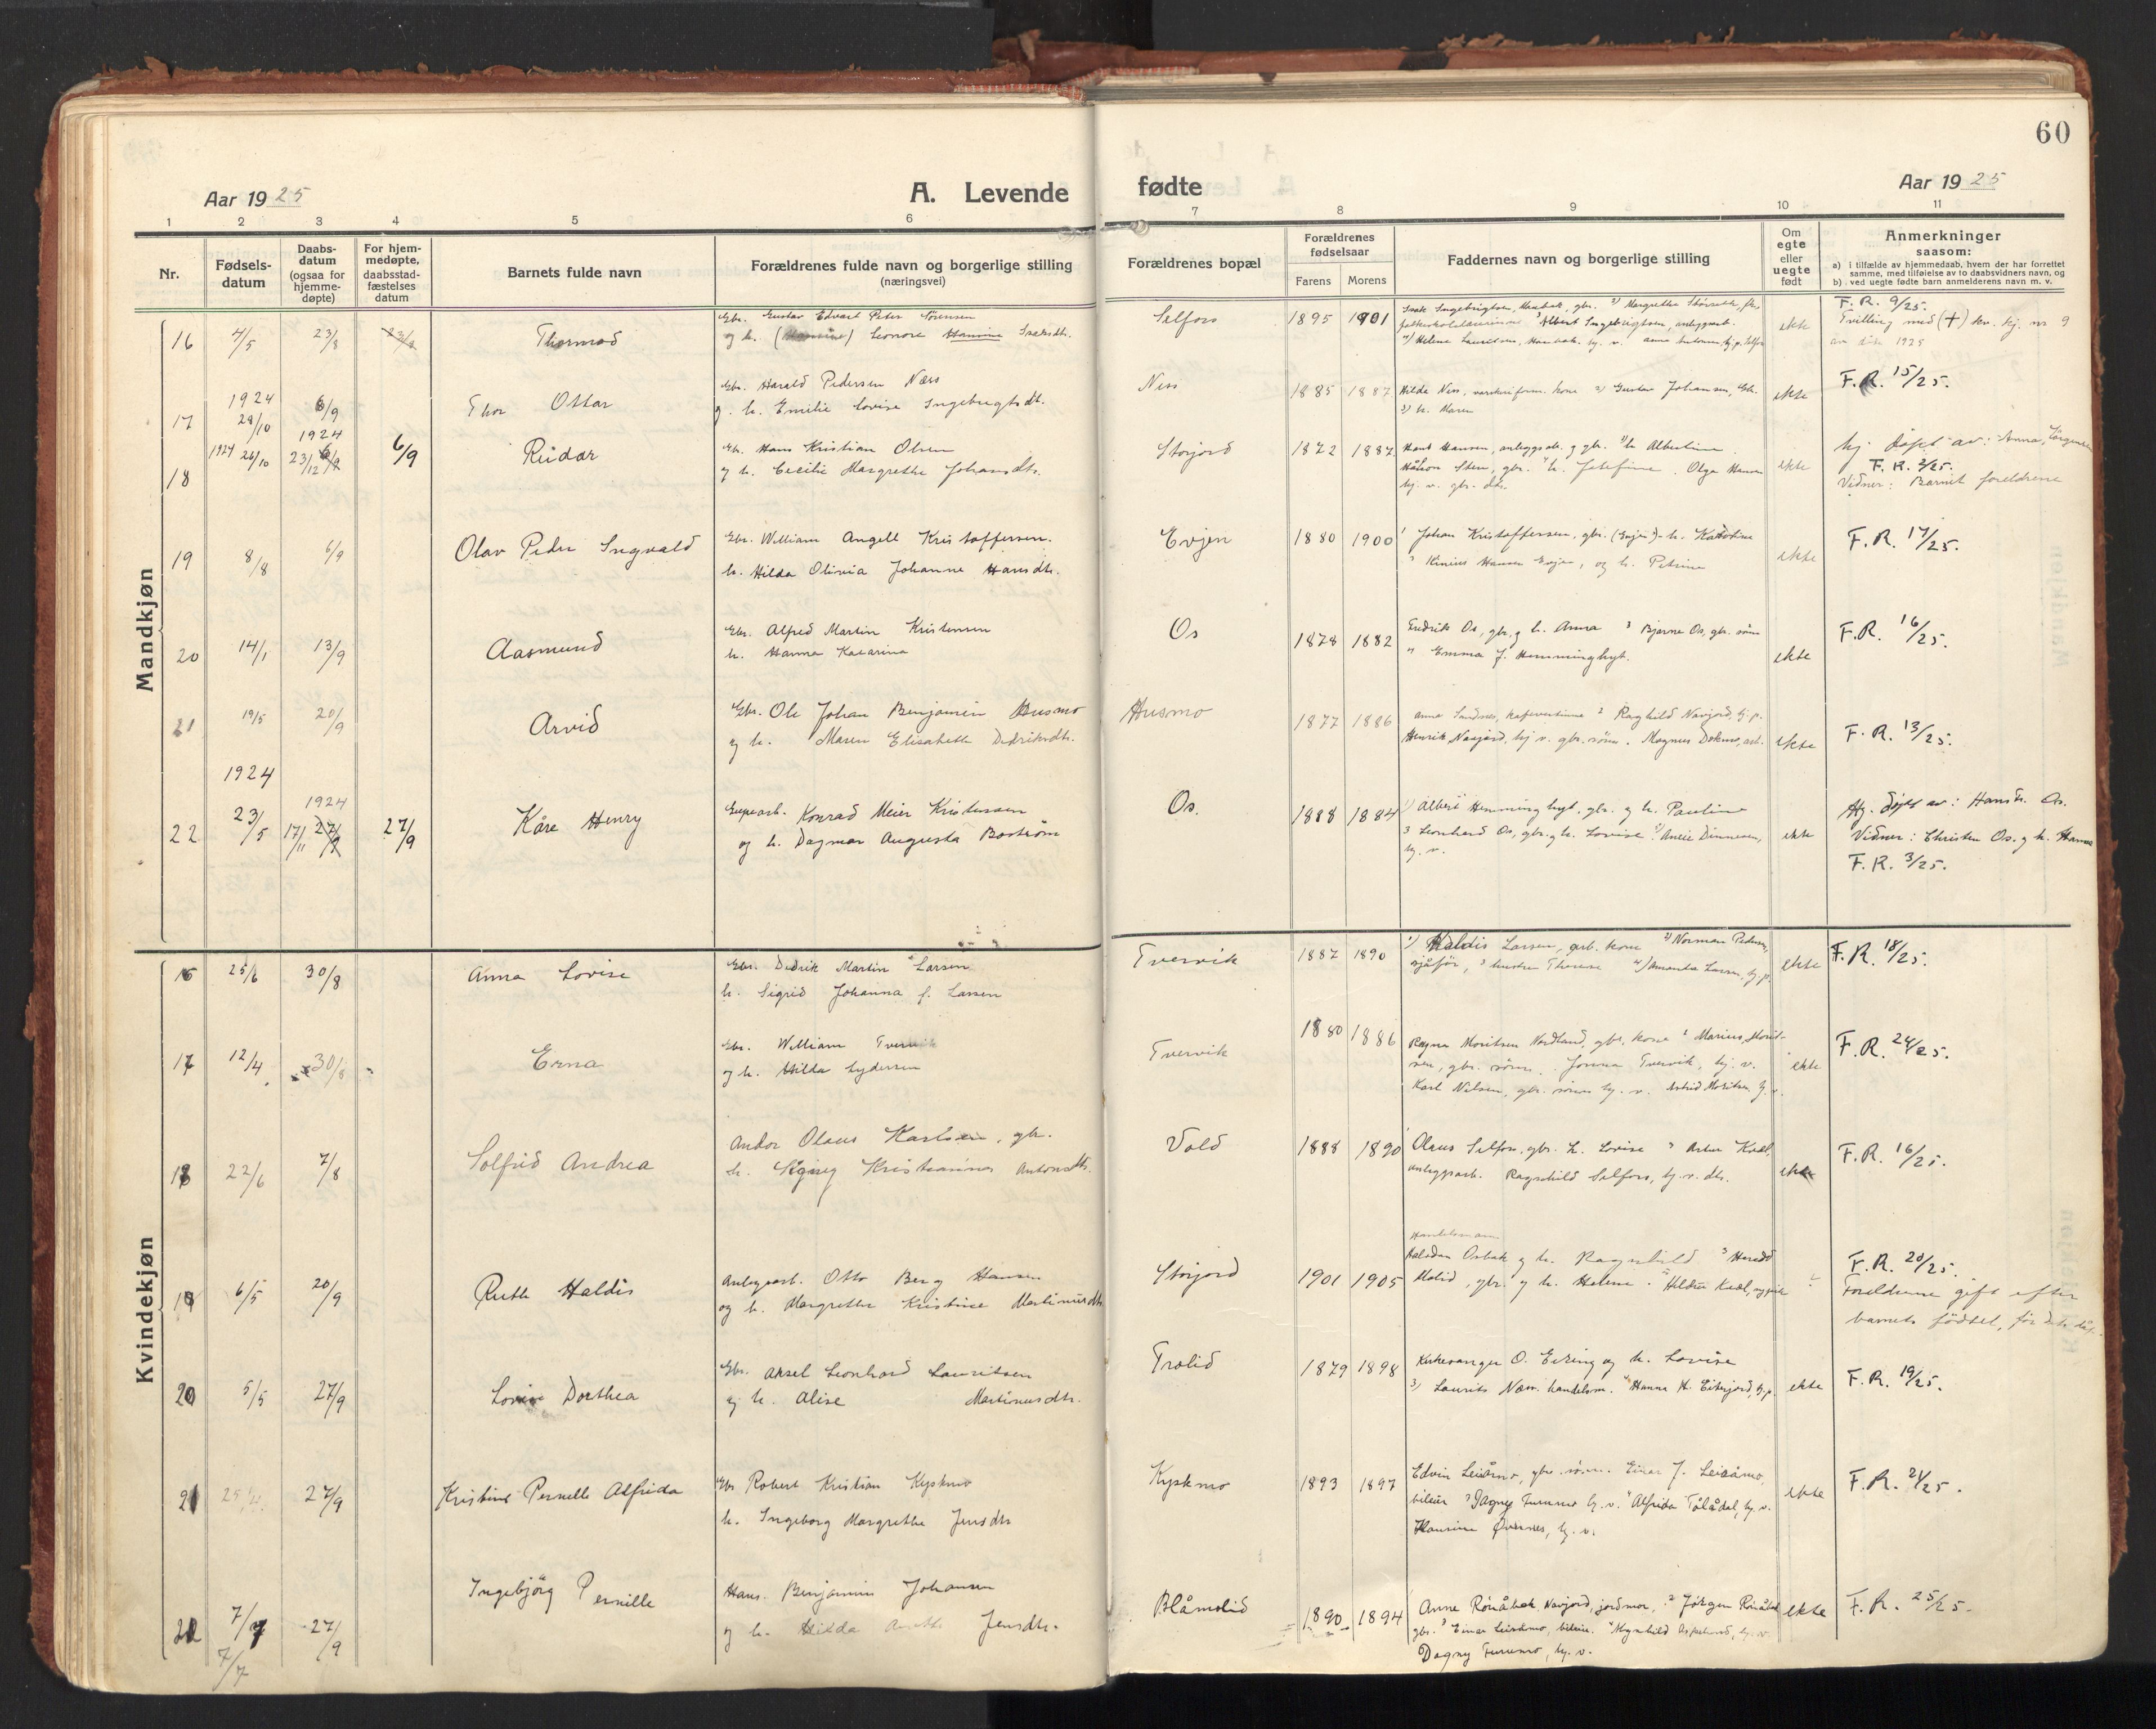 60
Aar 1925
A. Levende
fødte
Aar 1925
1 2 3 4 5 6 7 8 9 10 11
Nr.
Fødsels-
datum
Daabs-
datum
(ogsaa for
hjemme-
døpte)
For hjem-
medøpte,
daabsstad-
fæstelses
datum
Barnets fulde navn
Forældrenes fulde navn og borgerlige stilling
(næringsvei)
Forældrenes bopæl
Forældrenes
fødselsaar
Farens Morens
Faddernes navn og borgerlige stilling
Om
egte
eller
uegte
født
Anmerkninger
saasom:
a) i tilfælde av hjemmedaab, hvem der har forrettet
samme, med tilføielse av to daabsvidners navn, og
b) ved uegte fødte barn anmelderens navn m. v.
Mandkjøn
16 4/5 23/8 23/8 Thormod
Gbr. Gustav Edvart Peter Sørensen
og h. Leonore Hamine
Selfors 1895 1901
Albert Ingebrigtsen, anleggsarb.
ekte
F. R. 9/25.
Tvilling med (+) kv. kj. nr 9
1925
17 1924 29/10 6/9 Thor Ottar
Gbr. Harald Pedersen Næss
g. h. Emilie Lovise Ingebrigtsdtr.
Ness 1885 1887
Hilde Ness, kone 2) Gustav Johansen, Gbr.
3) h. Maren
ekte
F.R. 15/25.
18 1924 26/10 1924 23/12 6/9 6/9 Reidar
Gbr. Hans Kristian Olsen
og h. Cecilie Margrethe Johansdtr.
Storjord 1872 1887
Hans Hansen, anleggsarb. g h. Albertine
Håkon Sten, gbr. h. Josefine Olga Hansen
hj. v. gbr. dtr.
ekte
hj døpt av: Anna Jørgensen
F. R. 2/25.
Vidner: Barnets foreldrene
19 8/8 6/9 Olav Peder Ingvald
Gbr. William Angell Kristoffersen.
h. Hilda Olivia Johanne Hansdtr.
Evjen 1880 1900
Johan Kristoffersen, gbr. (Evjen) h. Katrine
Kinius Hansen Evjen, og h. Petrine
ekte
F. R. 17/25.
20 14/1 13/9 Aasmund
Gbr. Alfred Martin Kristensen
h. Hanna Katarina
Os 1878 1882
Fredrik Os, gbr. g h. Anna 3 Bjarne Os, gbr. sønn
4 Emma J. Hemminghyt.
ekte
F.R. 16/25.
21 19/5 20/9 Arvid
Gbr. Ole Johan Benjamin Husmo
g h. Maren Elisabeth Didriksdtr.
Husmo 1877 1886
Anna Sandnes, 2 Ragnhild Navjord, hj. p.
Henrik Navjord, hj v. gbr. sønn. Magnus
ekte
F. R. 13/25.
22 1924 23/5 1924 17/11 27/9 27/9 Kåre Henry
Konrad Meier Kristensen
og h. Dagmar Augusta Boström
Os. 1888 1884
1) Albert Hemminghyt. gbr. g h. Pauline
3 Leonhard Os, gbr. g h. Lovise
hj. v.
ekte
Hj. døpt av: Hans Os.
Vidner: Christen Os. g h. Hanna
F. R. 3/25.
Kvindekjøn
16 25/6 30/8 Anna Lovise
Gbr. Didrik Martin Larsen
h. Sigrid Johanna f. Larsen
Tvervik 1887 1890
1) Haldis Larsen, arb. kone 2) Norman Pedersen,
sjåfør, 3 hustru Therese 4) Amanda Larsen, hj. p.
ekte
F. R. 18/25.
17 12/4 30/8 Erna
Gbr. William Tvervik
og h. Hilda Lydersen
Tvervik 1880 1886
Ragna Moritsen Nordland, gbr. kone 2 Marius Morit-
sen, gbr. sønn. Jonna Tvervik, hj. v.
Karl Nilsen, gbr. sønn hj. v. Astrid Moritsen, hj. v.
ekte
F. R. 24/25.
18 22/6 7/8 Solfrid Andrea
Andor Olaus Karlsen, gbr.
h. Signy Kristianna Antonsdtr.
Vold 1888 1890
Olaus Selfors, gbr. h. Lovise
anleggsarb. Ragnhild Selfors, hj. v. dtr.
ekte
F. R. 16/25.
19 6/5 20/9 Ruth Haldis
Anlegsarb. Otto Berg Hansen
og h. Margrethe Kristine Martinusdtr.
Storjord 1901 1905
Handelsmann
Halvdan Osbak g h. Ragnhild 3
Molid, gbr. g h. Helene.
F. R. 20/25.
Foreldrene gift efter
barnets födsel, før dets dåp.
20 5/5 27/9 Lovise Dorthea
Gbr. Aksel Leonhard Lauritsen
g h. Alise Martinusdtr.
Trolid 1879 1898
Kirkesanger O. Evjing og h. Lovise
3) Laurits Næss, handelsm. Hanna H. Eikjord, hj. p.
ekte
F. R. 19/25.
21 27/9 Kristine Pernelle Alfrida
Gbr Robert Kristian Kyskmo
h. Ingeborg Margrethe Jensdtr
Kyskmo 1893 1897
Edvin Leiråmo, gbr. sønn. Einar J. Leiråmo,
bileier 3 Dagny Furumo hj. v. 4 Alfrida Tolådal, hj. v.
Hansine Øvernes, hj. v.
ekte
F. R. 21/25.
22 7/7 27/9 Ingebjörg Pernille
7/7
Hans Benjamin Johansen
g h. Hilda Jensdtr.
Blåmolid 1890 1894
Anne Rönåbak, Navjord, jordmor, 2 Jörgen Rönåbak
gbr. 3 Einar Leiråmo, bileier.
Dagny Furumo, hj. v.
ekte
F. R. 25/25.